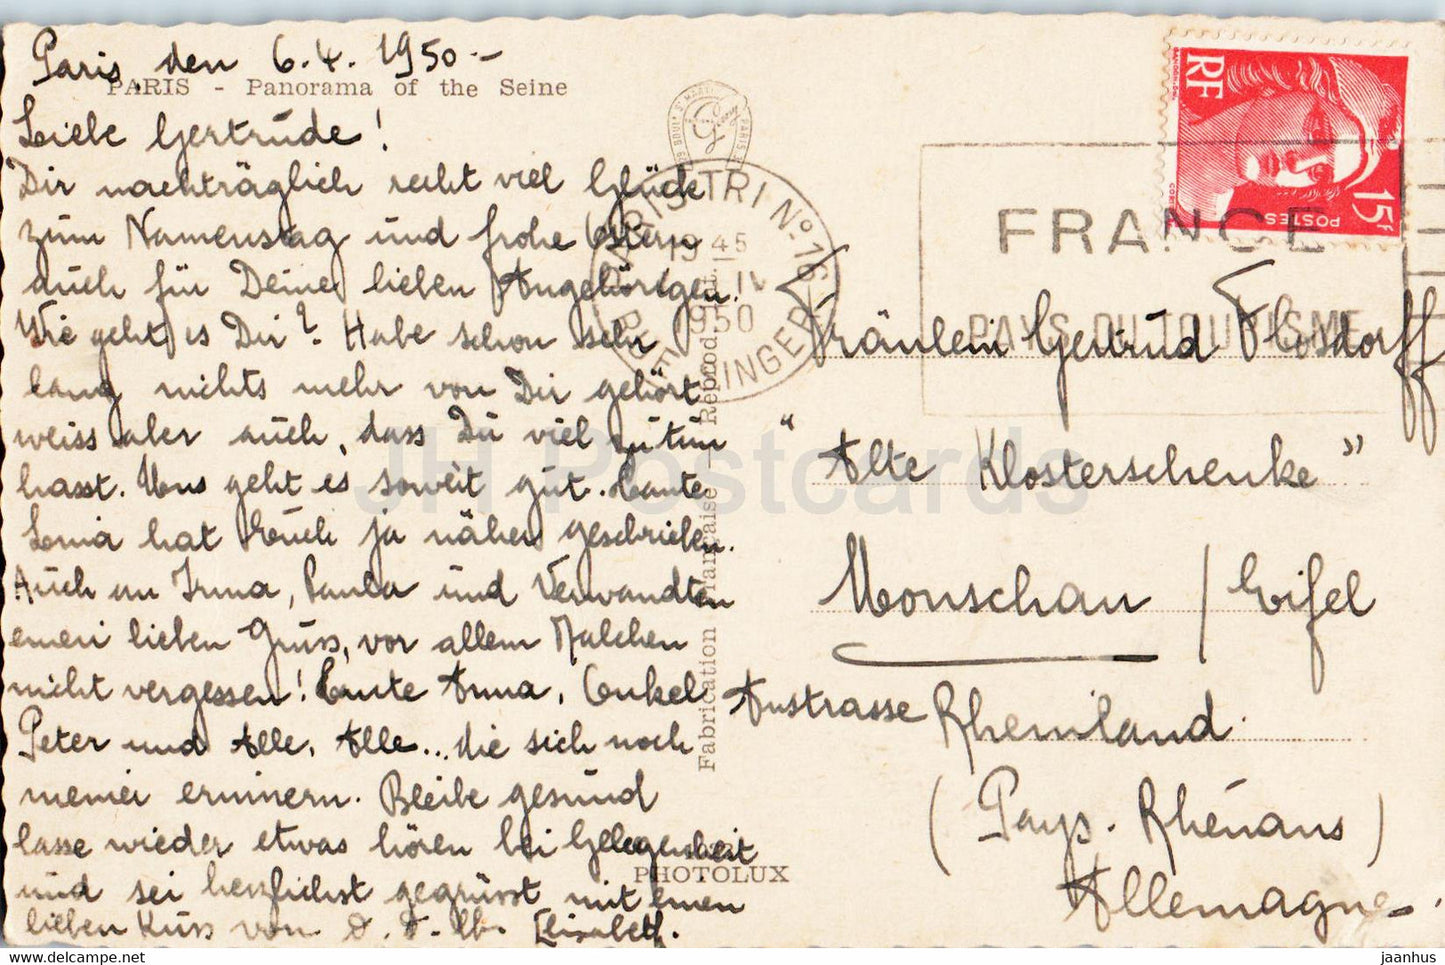 Paris, den 6.4.1950.-
PARIS - Panorama of the Seine
Liebe Gertrude!
Dir nachträglich recht viel Glück
zum Namenstag und frohe Ostern
auch für Deine lieben Angehörigen.
Wie geht es Dir? Habe schon sehr
lang nichts mehr von Dir gehört
weiss aber auch, dass Du viel zu tun
hasst. Uns geht es soweit gut. Tante
Lenia hat Euch ja näher geschrieben.
Auch an Irma, Paula und Verwandten
einen lieben Gruss, vor allem Malchen
nicht vergessen! Tante Anna, Onkel
Peter und Alle, Alle... die sich noch
meiner erinnern. Bleibe gesund
lasse wieder etwas hören bei Gelegenheit
und sei herzlichst gegrüsst mit einen
lieben Kuss von d. d. lb. Elisabeth.
Fabrication Française - Reprod. Int.
PHOTOLUX
PARIS TRI Nº 16
19 45
IV
1950
RF
15F
POSTES
FRANCE
PAYS DU TOURISME
Fräulein Gertrud Flosdorff
"Alte Klosterschenke"
Monschau / Eifel
Austrasse Rheinland.
(Pays. Rhénans)
Allemagne.
JH Postcards
Use Leer www.hippostcard.com
jaanhus